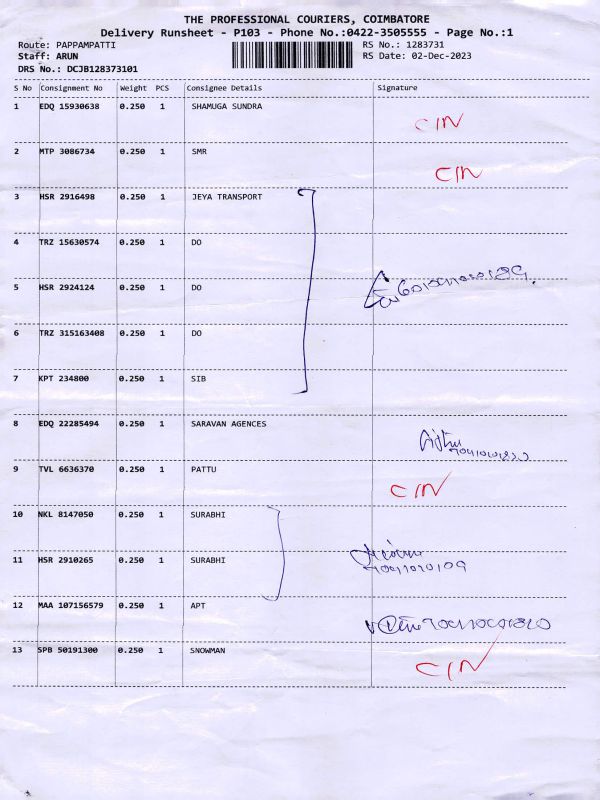 THE PROFESSIONAL COURIERS, COIMBATORE
Delivery Runsheet - P103 - Phone No.:0422-3505555 - Page No.:1
Route: PAPPAMPATTI RS No.: 1283731
Staff: ARUN RS Date: 02-Dec-2023
DRS No.: DCJB128373101
S No Consignment No Weight PCS Consignee Details Signature
1 EDQ 15930638 0.250 1 SHAMUGA SUNDRA CIN
2 MTP 3086734 0.250 1 SMR CIN
3 HSR 2916498 0.250 1 JEYA TRANSPORT
4 TRZ 15630574 0.250 1 DO
5 HSR 2924124 0.250 1 DO
6 TRZ 315163408 0.250 1 DO
7 KPT 234800 0.250 1 SIB
8 EDQ 22285494 0.250 1 SARAVAN AGENCES
9 TVL 6636370 0.250 1 PATTU CIN
10 NKL 8147050 0.250 1 SURABHI
11 HSR 2910265 0.250 1 SURABHI
12 MAA 107156579 0.250 1 APT
13 SPB 50191300 0.250 1 SNOWMAN CIN